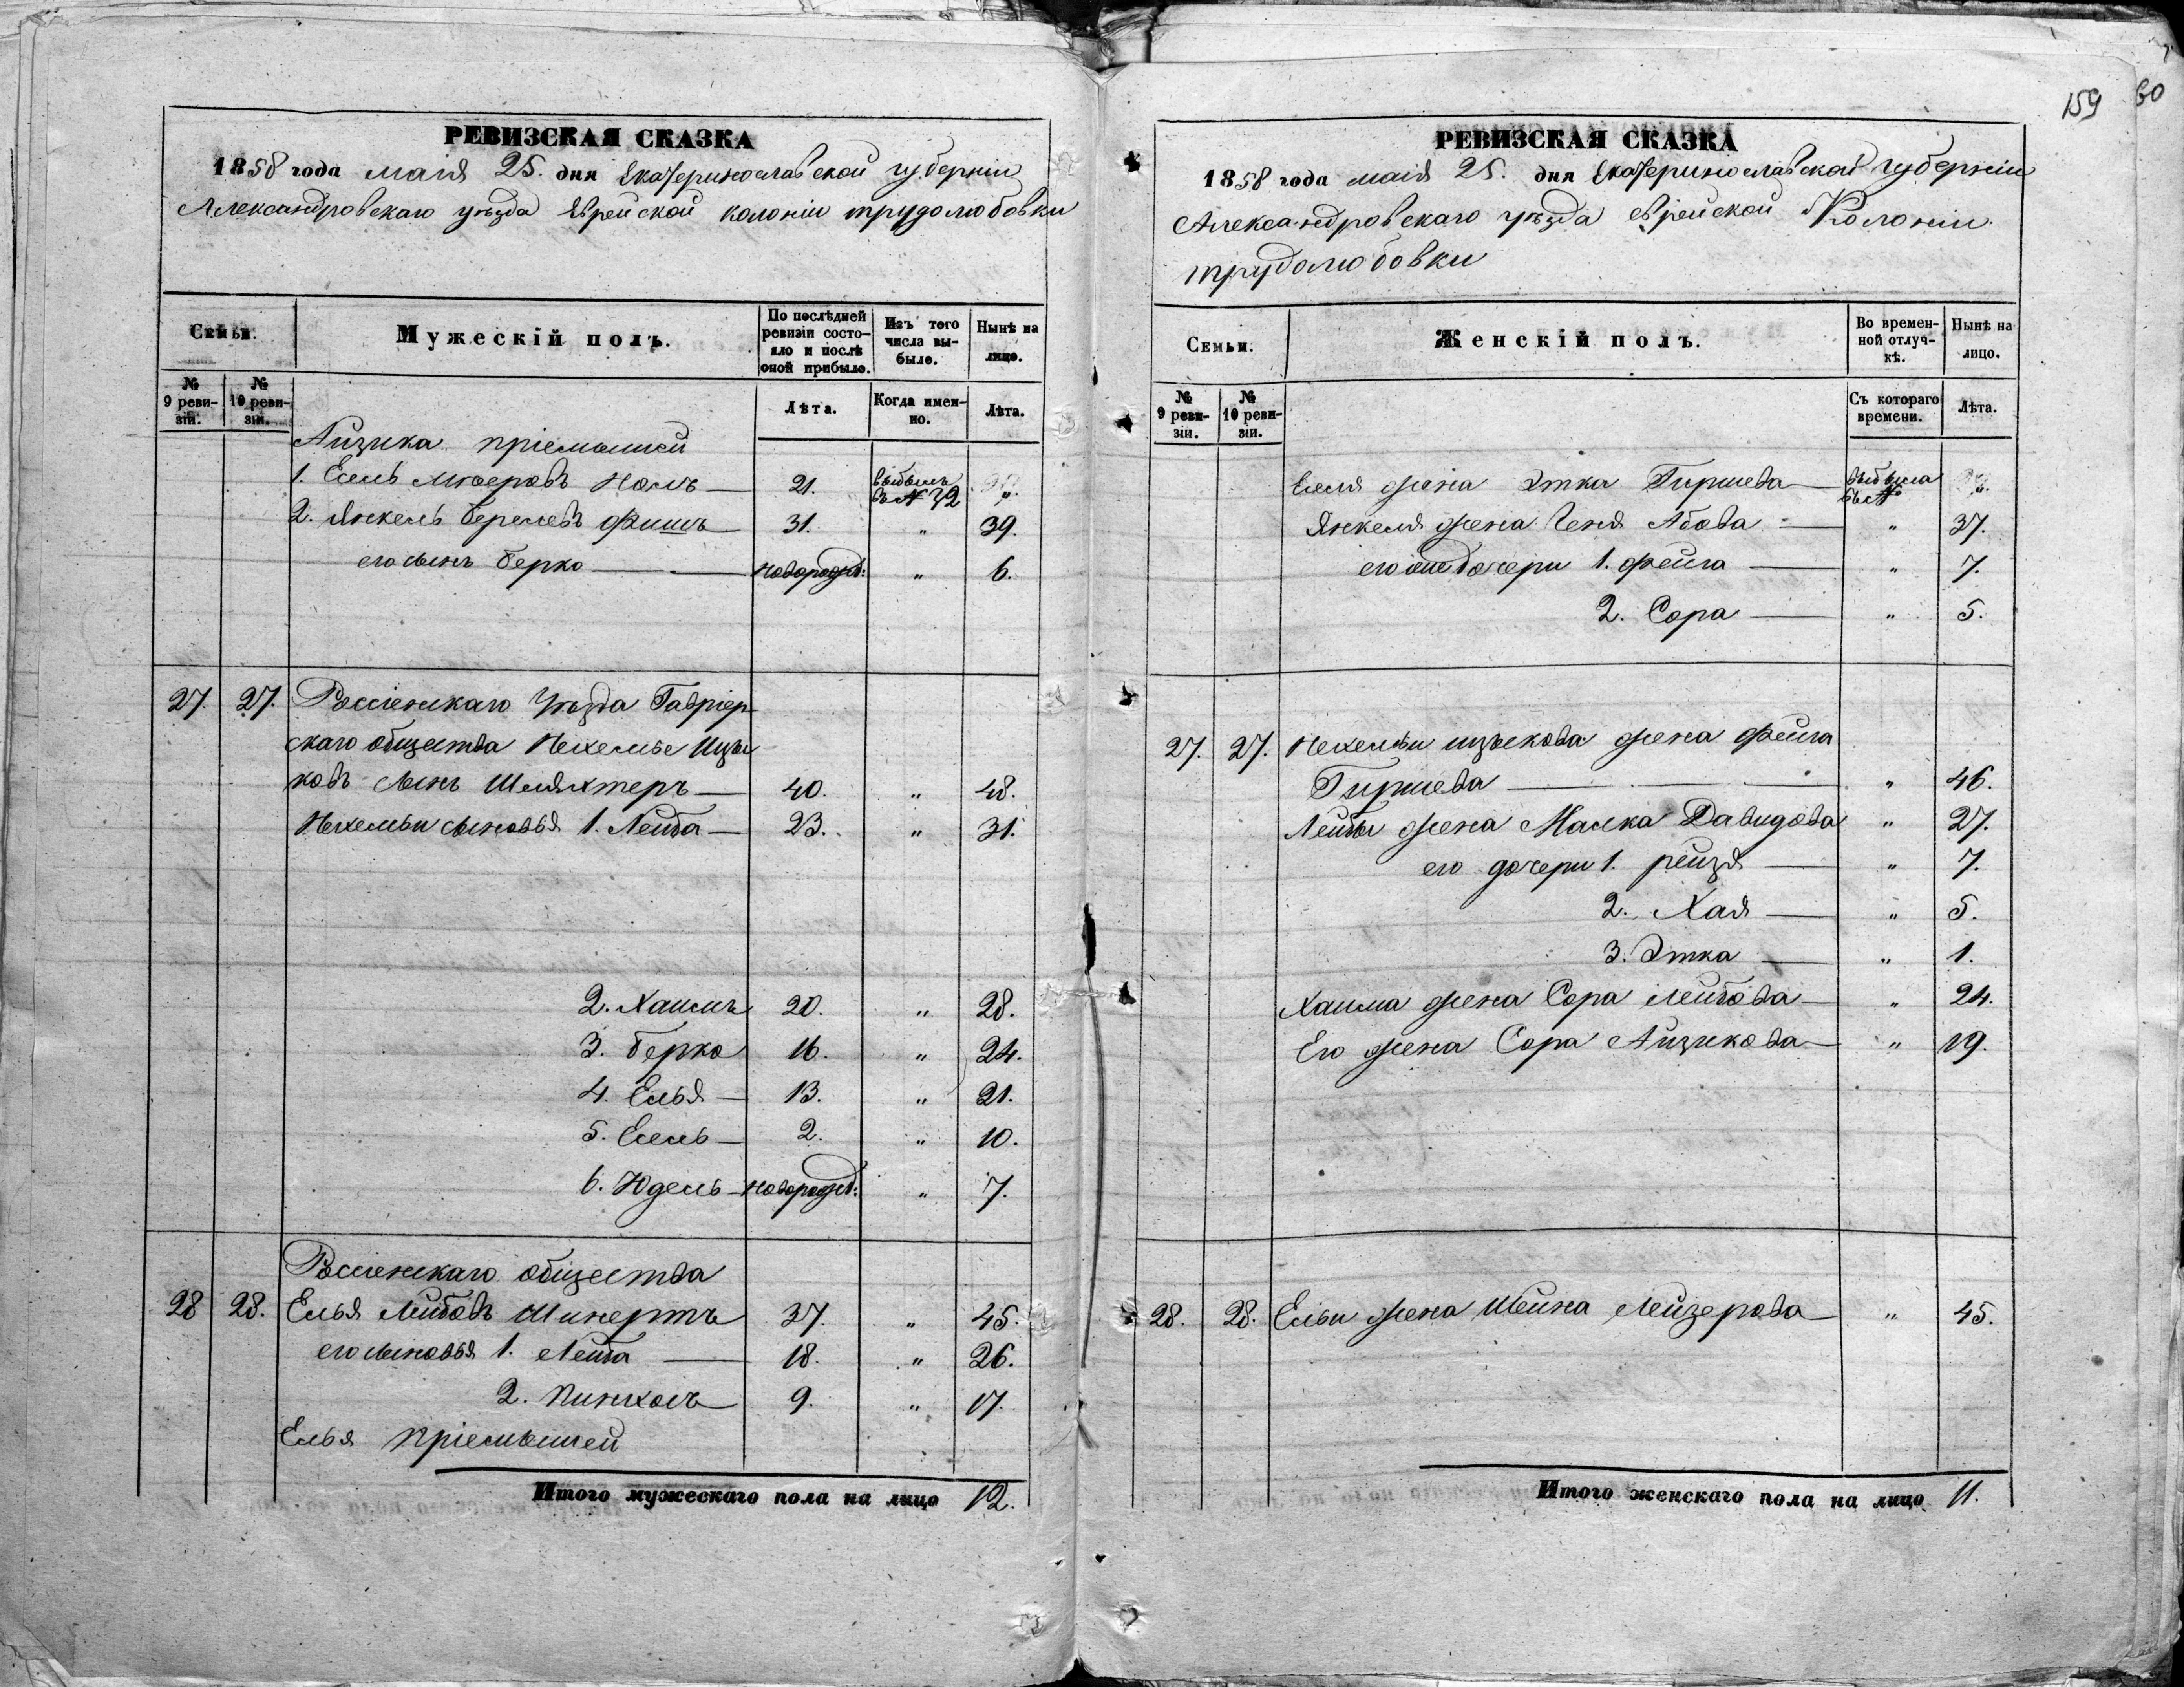 РЕВИЗСКАЯ СКАЗКА
1858 года маія 25. дня Екатеринославской губерніи
Александровскаго уѣзда Еврейской колоніи трудолюбовки
Семьи.
Мужескій полъ.
По послѣдней ревизіи состояло и послѣ оной прибыло.
Изъ того числа выбыло.
Нынѣ на лицо.
№ 9 ревизіи.
№ 10 ревизіи.
Лѣта.
Когда именно.
Лѣта.
Айзика пріемыши
1. Есель 21. выбылъ въ № 72 "
2. Янкель Берелевъ Фишъ 31. " 39.
его сынъ Берко новорожд: " 6.
27. 27. Россіенскаго Уѣзда Гавріер-
скаго общества Нехемье Ицы
ковъ сынъ Шляхтеръ 40. " 48.
Нехемьи сыновья 1. Лейба 23. " 31.
2. Хаимъ 20. " 28.
3. Берко 16. " 24.
4. Елья 13. " 21.
5. Есель 2. " 10.
6. Юдель новорожд: " 7.
Россіенскаго общества
28 28. Елья Лейбовъ Шинертъ 37. " 45.
его сыновья 1. Лейба 18. " 26.
2. Пинхосъ 9. " 17.
Елья пріемышей
Итого мужескаго пола на лицо 12.
159 60
РЕВИЗСКАЯ СКАЗКА
1858 года маія 25. дня Екатеринославской губерніи
Александровскаго уѣзда еврейской Колоніи
трудолюбовки
Семьи.
Женскій полъ.
Во временной отлучкѣ.
Нынѣ на лицо.
№ 9 ревизіи.
№ 10 ревизіи.
Съ котораго времени.
Лѣта.
Еселя жена Этка Гиршева выбыла въ № "
Янкеля жена Геня Абова " 37.
его дочери 1. Фейга " 7.
2. Сора " 5.
27. 27. Нехемьи ицыкова жена Фейга
Гиршева " 46.
Лейбы жена Малка Давидова " 27.
его дочери 1. рейзя " 7.
2. Хая " 5.
3. Этка " 1.
Хаима жена Сора Лейбова " 24.
Его жена Сора Айзикова " 19.
28. 28. Ельи жена Шейна Лейзерова " 45.
Итого женскаго пола на лицо 11.